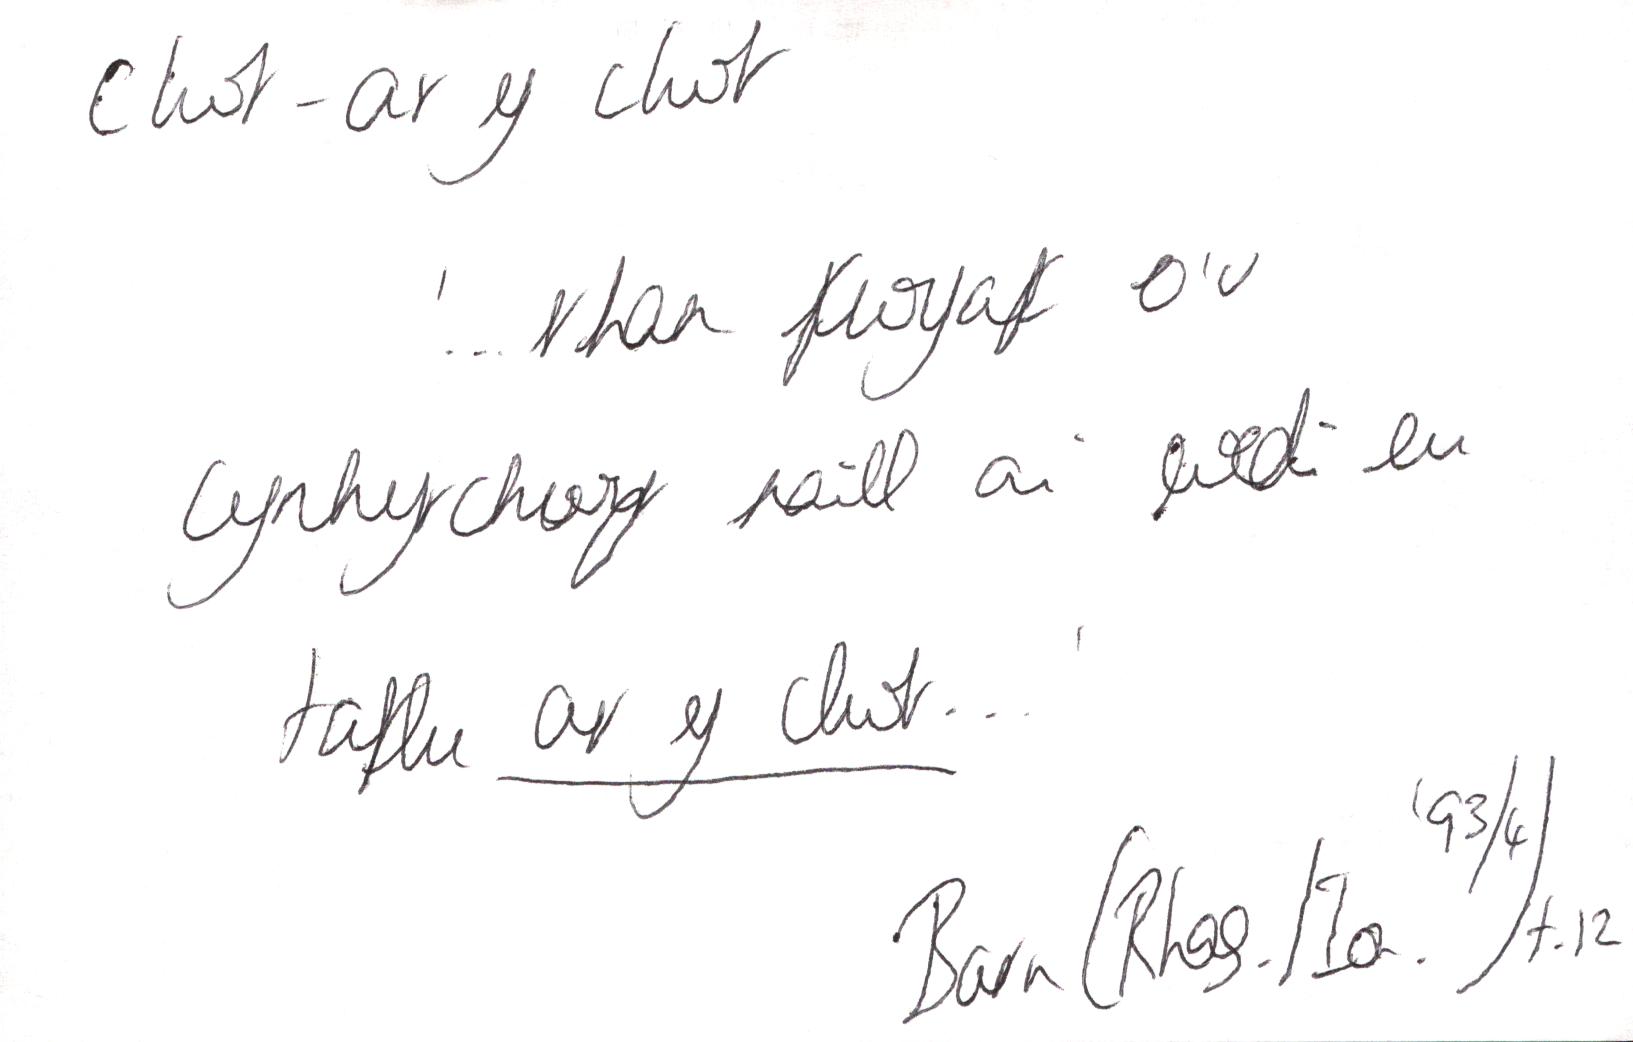 clwt - ar y clwt
'... rhan fwyaf o'u
cynhyrchwyr naill ai wedi eu
taflu ar y clwt...'
Barn (Rhag./Ion. '93/4) t.12